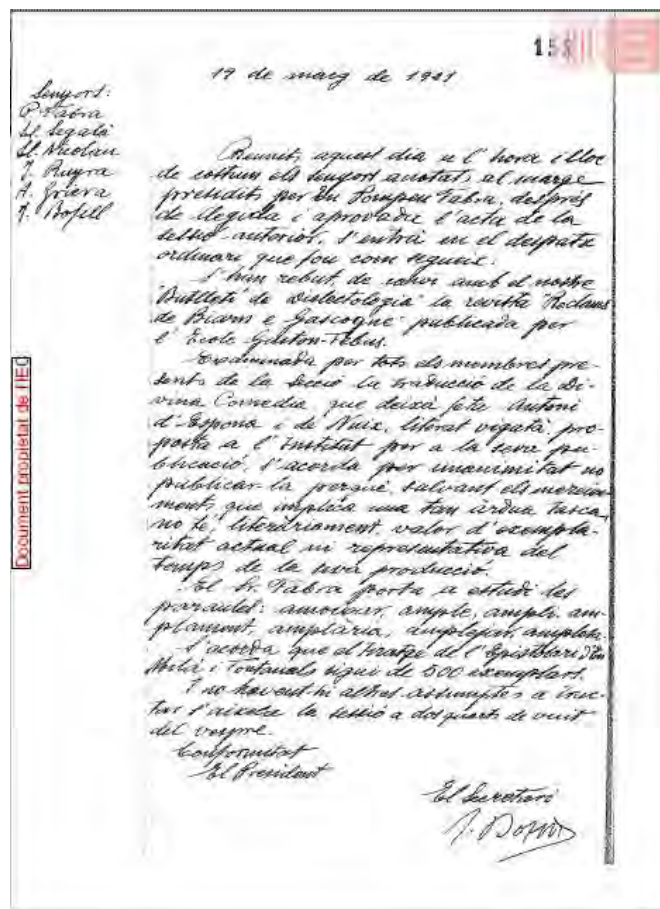 158
19 de març de 1921
Senyors:
P. Fabra
Ll. Segalà
Ll. Nicolau
J. Ruyra
A. Griera
J. Bofill
Reunits, aquest dia a l'hora i lloc
de costum els senyors anotats al marge
presidits per En Pompeu Fabra, després
de llegida i aprovada l'acta de la
sessió anterior, s'entrà en el despatx
ordinari que fou com segueix:
S'han rebut de canvi amb el nostre
"Butlletí de Dialectologia" la revista "Reclams
de Biarn e Gascogne" publicada per
l'Escole Gaston-Febus.
Examinada per tots els membres pre-
sents de la Secció la traducció de la Di-
vina Comedia que deixà feta Antoni
d'Espona i de Nuix, literat vigatà, pro-
posta a l'Institut per a la seva pu-
blicació, s'acorda per unanimitat no
publicar-la perquè, salvant els mereixe-
ments que implica una tan àrdua tasca,
no té, literàriament, valor d'exempla-
ritat actual ni representativa del
temps de la seva producció.
El Sr. Fabra porta a estudi les
paraules: amorosir, ample, ampli, am-
plament, amplària, amplejar, amplesa.
S'acorda que el tiratge de l'Epistolari d'En
Milà i Fontanals sigui de 500 exemplars.
I no havent-hi altres assumptes a trac-
tar s'aixeca la sessió a dos quarts de vuit
del vespre.
Conformitat
El President
El Secretari
J. Bofill
Document propietat de l'IEC